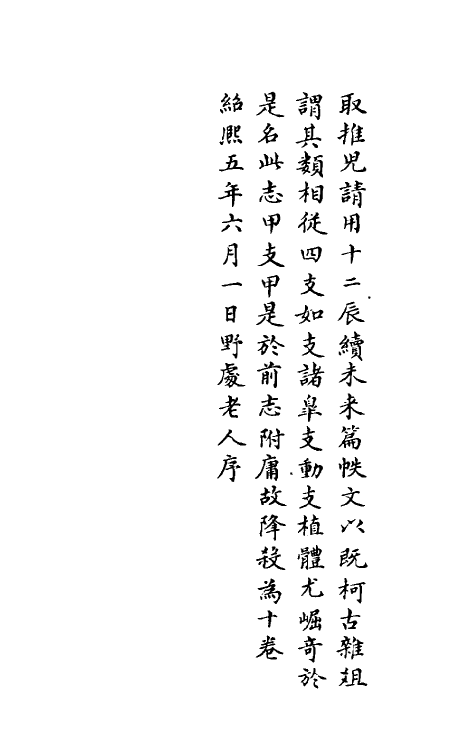 取推兒請用十二辰續未来篇帙文以既柯古雜俎
謂其類相從四支如支諸臯支動支植體尤崛奇於
是名此志甲支甲是於前志附庸故降殺為十卷
紹熈五年六月一日野處老人序